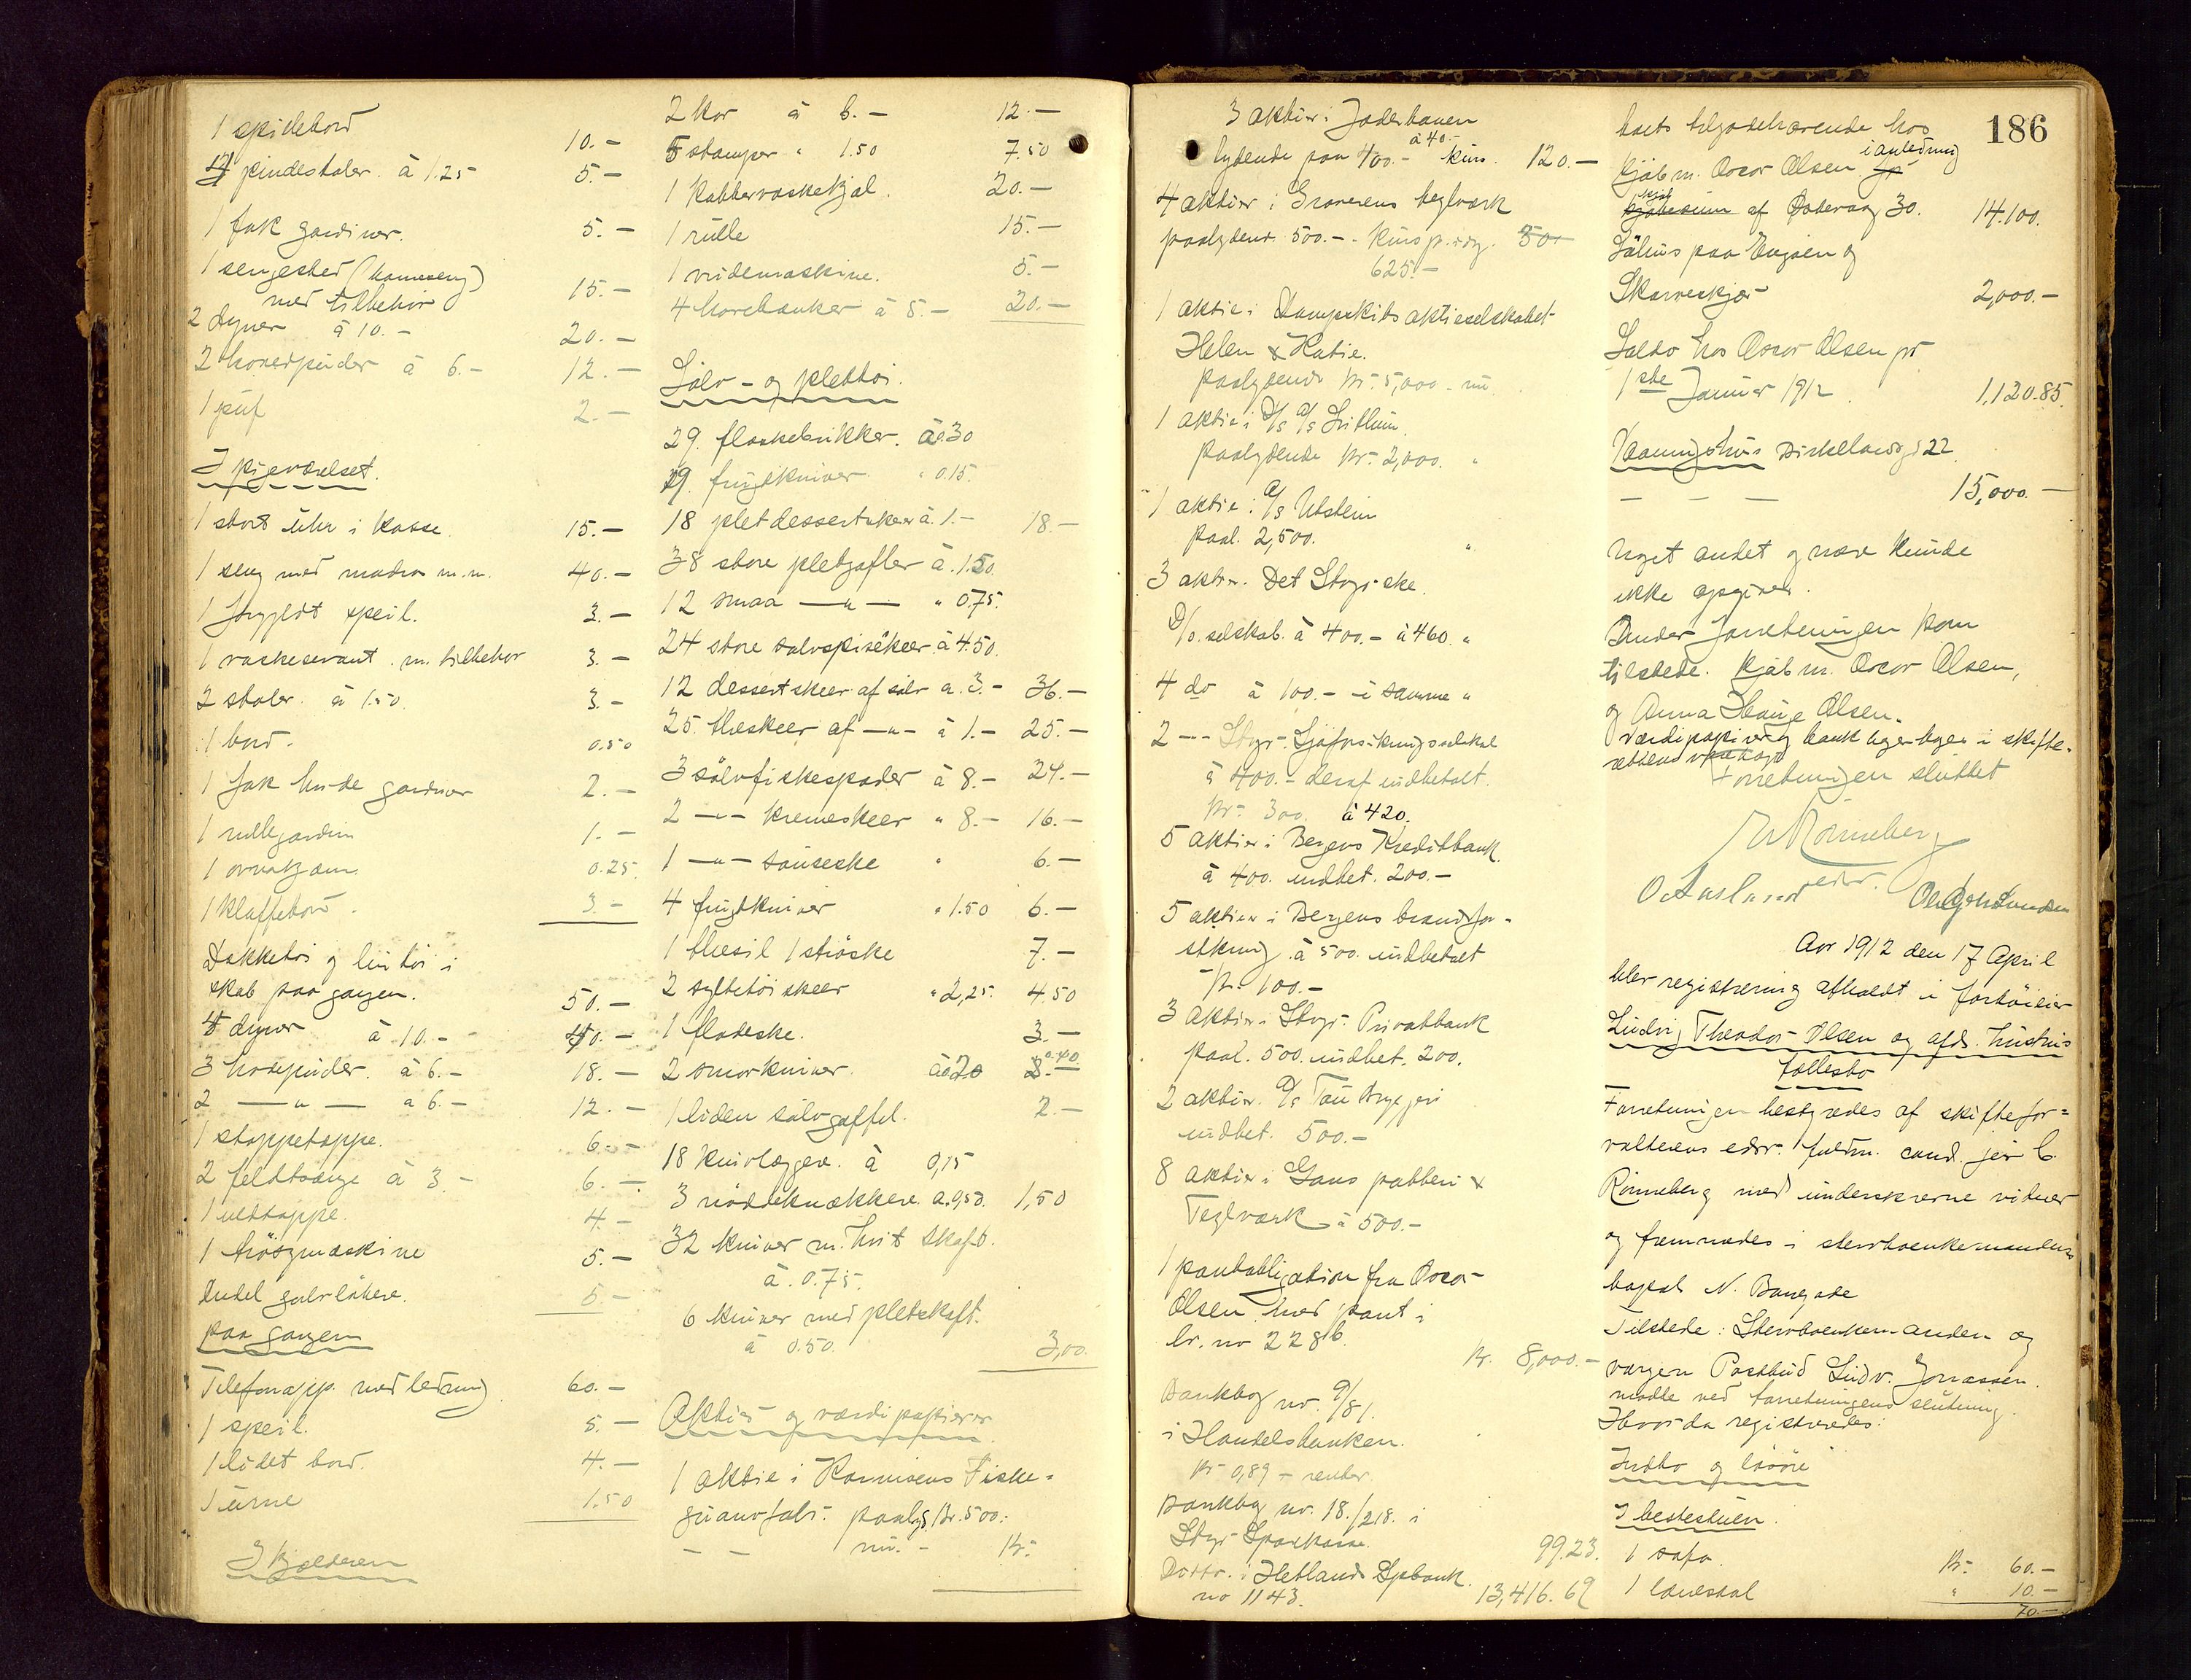 1 spillebord 10.-
4 pindestoler. à 1.25 5.-
1 fak gardiner. 5.-
1 sengested (
med tilbehör 15.-
2 dyner à 10.- 20.-
2 hovedpuder à 6.- 12.-
1 puf 2.-
I pigeværelset.
1 stort uhr i kasse. 15.-
1 seng med madras m.m. 40.-
1 forgyldt speil. 3.-
1 vaskeservant. m. tilbehør 3.-
2 stoler. à 1.50 3.-
1 bord. 0.50
1 fak hvide gardiner 2.-
1 rullegardin 1.-
1 0.25
1 klaffebord. 3.-
Dækketøi og lintöi i
skab paa gangen. 50.-
4 dyner à 10.- 40.-
3 hovepuder. à 6.- 18.-
2 —"— a 6.- 12.-
1 stoppetæppe. 6.-
2 feldtsænge à 3.- 6.-
1 uldtæppe. 4.-
1 5.-
Endel gulvløbere. 5.-
paa gangen
Telefonapp. med ledning 60.-
1 speil. 5.-
1 lidet bord. 4.-
1 urne 1.50
I kjælderen
2 kar à 6.- 12.-
5 stamper " 1.50 7.50
1 kobbervaskekjel. 20.-
1 rulle 15.-
1 vridemaskine. 5.-
4 havebænker à 5.- 20.-
Sölv- og plettöi.
29. flaskebrikker. à 0.30
19. frugtkniver " 0.15.
18 plet dessertskeer à. 1.- 18.-
38 store pletgafler à. 1.50.
12 smaa —"— " 0.75.
24 store sølvspiseskeer à 4.50.
12 dessertskeer af sölv a. 3.- 36.-
25. theskeer af —"— à 1.- 25.-
3 sölvfiskespader à 8.- 24.-
2 —"— kremeskeer " 8.- 16.-
1 —"— sauseske " 6.-
4 frugtkniver " 1.50 6.-
1 thesil 1 ströske 7.-
2 syltetöiskeer " 2,25. 4.50
1 flödeske. 3.-
2 smørkniver. à 0.20 0.40
1 liden sölvgaffel. 2.-
18 knivlæggere. à 0,15
3 nöddeknækkere a. 0,50. 1,50
32 kniver m. hvit skaft.
à. 0.75.
6 kniver med pletskaft.
à 0.50. 3,00.
Aktier og værdipapirer
1 aktie i Hansens Fiske-
guanofabr. paalyd. kr. 500.-
— — nu. - kr.
186
3 aktier i Jæderbanen
à 40.-
lydende paa 400.- kurs. 120.-
4 aktier i Graverens teglværk
paalydend. 500.-. Kurs p. idag. 50
625.-
1 aktie i Dampskibsaktieselskabet
Helen & Katie.
paalydende kr. 5,000.- nu
1 aktie i D/S A/S
paalydende kr. 2,000. "
1 aktie i A/S Utstein
paal. 2,500. "
3 aktier. Det Stvgr-ske.
D/S. selskab. à 400.- à 460. "
4 do à 100.- i samme "
2 —"— Stvgr. Sjöforsikringsselskab
à 400.- deraf indbetalt.
kr. 300. à 420.
5 aktier i Bergens Kreditbank.
à 400. indbet. 200.-
5 aktier i Bergens brandfor-
sikring. à 500. indbetalt
kr. 100.-
3 aktier i Stvgr. Privatbank
paal. 500. indbet. 200.
2 aktier. A/S Tau Bryggeri
indbet. 500.-
8 aktier i Gans potteri &
Teglværk à 500.-
1 pantobligation fra Oscar
Olsen med pant i
br. no 228 b. kr. 8,000.-
Bankbog nr. 9/81.
i Handelsbanken.
kr. 0,89 - renter.
Bankbog nr. 18./218. i
Stvgr. Sparkasse. 99.23.
Dotto. i Hetland Spbank.
no 1143. 13,416.69
boets tilgodehavende hos
Kjöbm. Oscar Olsen i anledning
kjöb af Østervåg 30. 14.100.
Söhus paa Engöen og
Skarveskjær 2,000.-
Saldo hos Oscar Olsen pr
1ste Januar 1912. 1,120.85.
Vaaningshus Birkelandsgd 22
— — — 15,000.-
Noget andet og mere kunde
ikke opgives.
Under forretningen kom
tilstede. Kjöbm. Oscar Olsen,
og Anna Hauge Olsen.
Værdipapirer og bankbøger tages i skifte-
rettens
Forretningen sluttet
Rönneberg
edsv.
Aar 1912 den 17 April
blev registrering afholdt i fartöieier
Ludvig Theodor Olsen og afd. hustrus
fællesbo
Forretningen bestyredes af skiftefor=
valterens edsv. fuldm. cand. jur C.
Rönneberg med underskrevne vidner
og fremmødes i sterboenkemandens
bopæl N. Bangade
Tilstede: Sterboenkemanden og
værgen Postbud Ludv. Jonassen.
mødte ved forretningens slutning.
Hvorda registreredes:
Indbo og lösöre
I bestestuen.
1 sofa. kr. 60.-
1 lænestol " 10.-
70.-